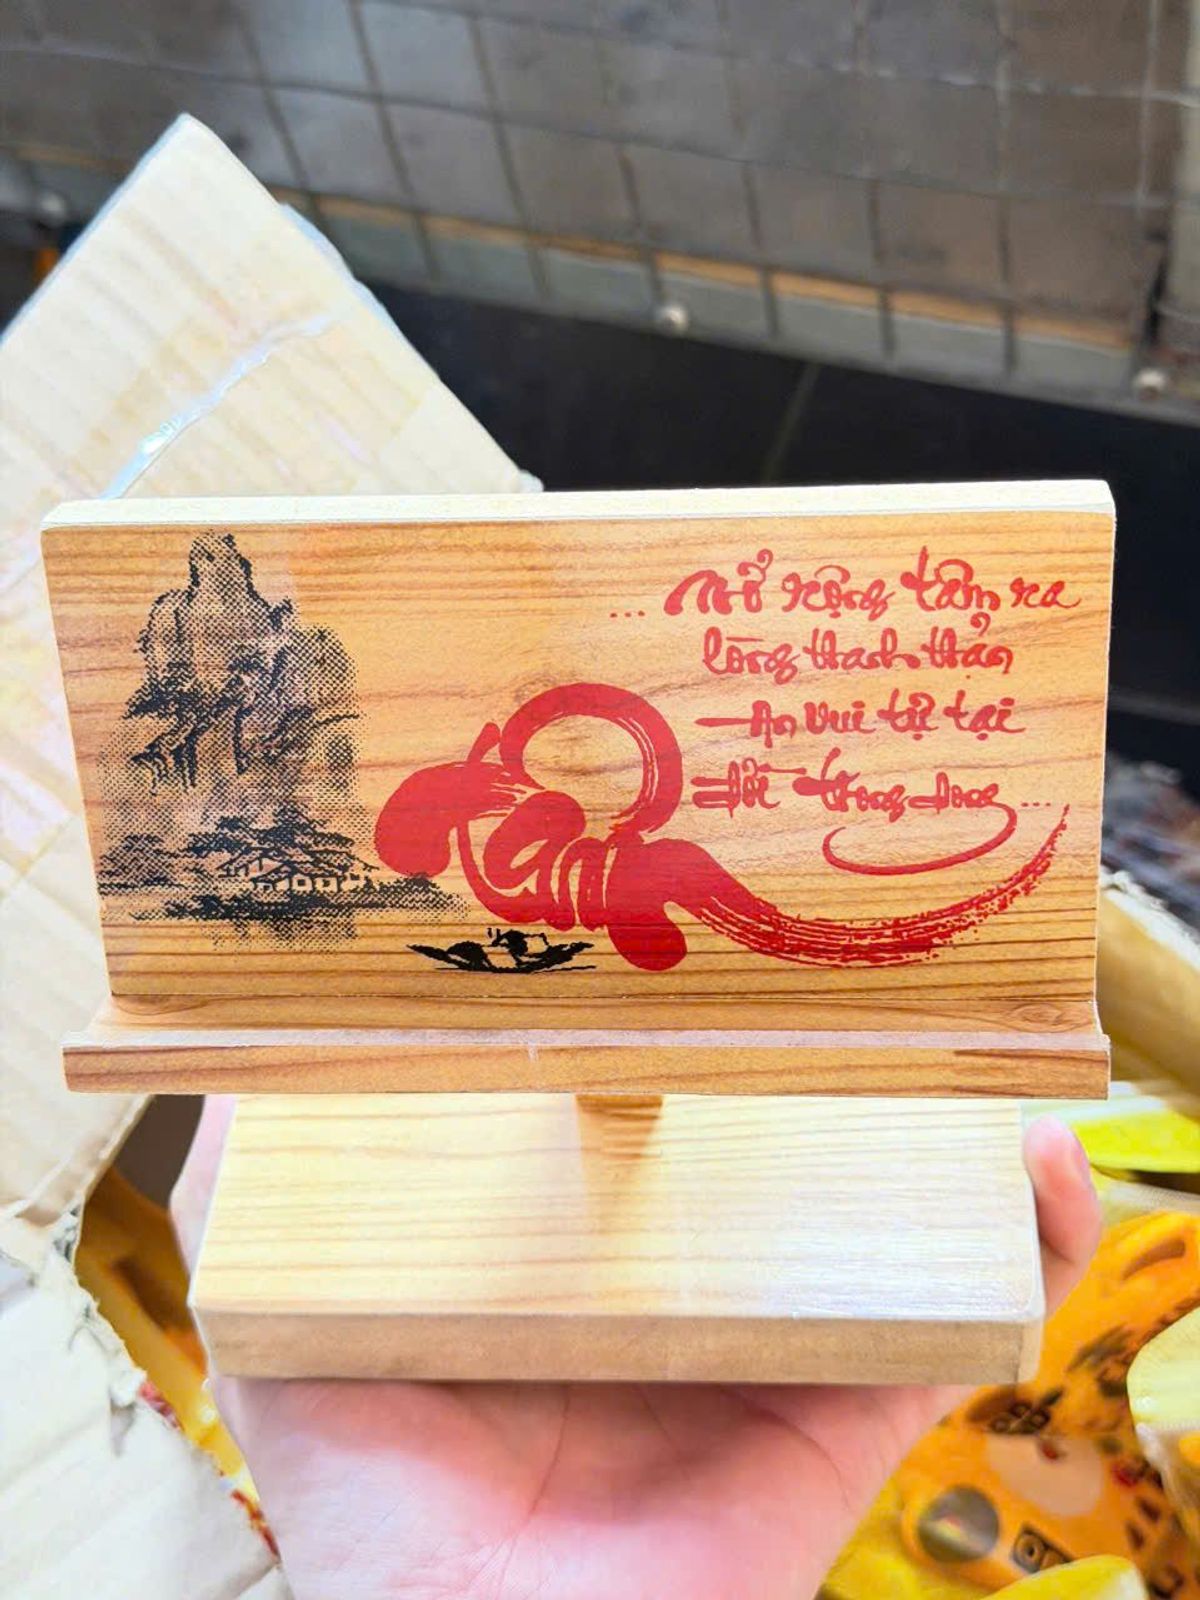 ... Mở rộng tâm ra
lòng thanh thản
An vui tự tại
đời thong dong ...